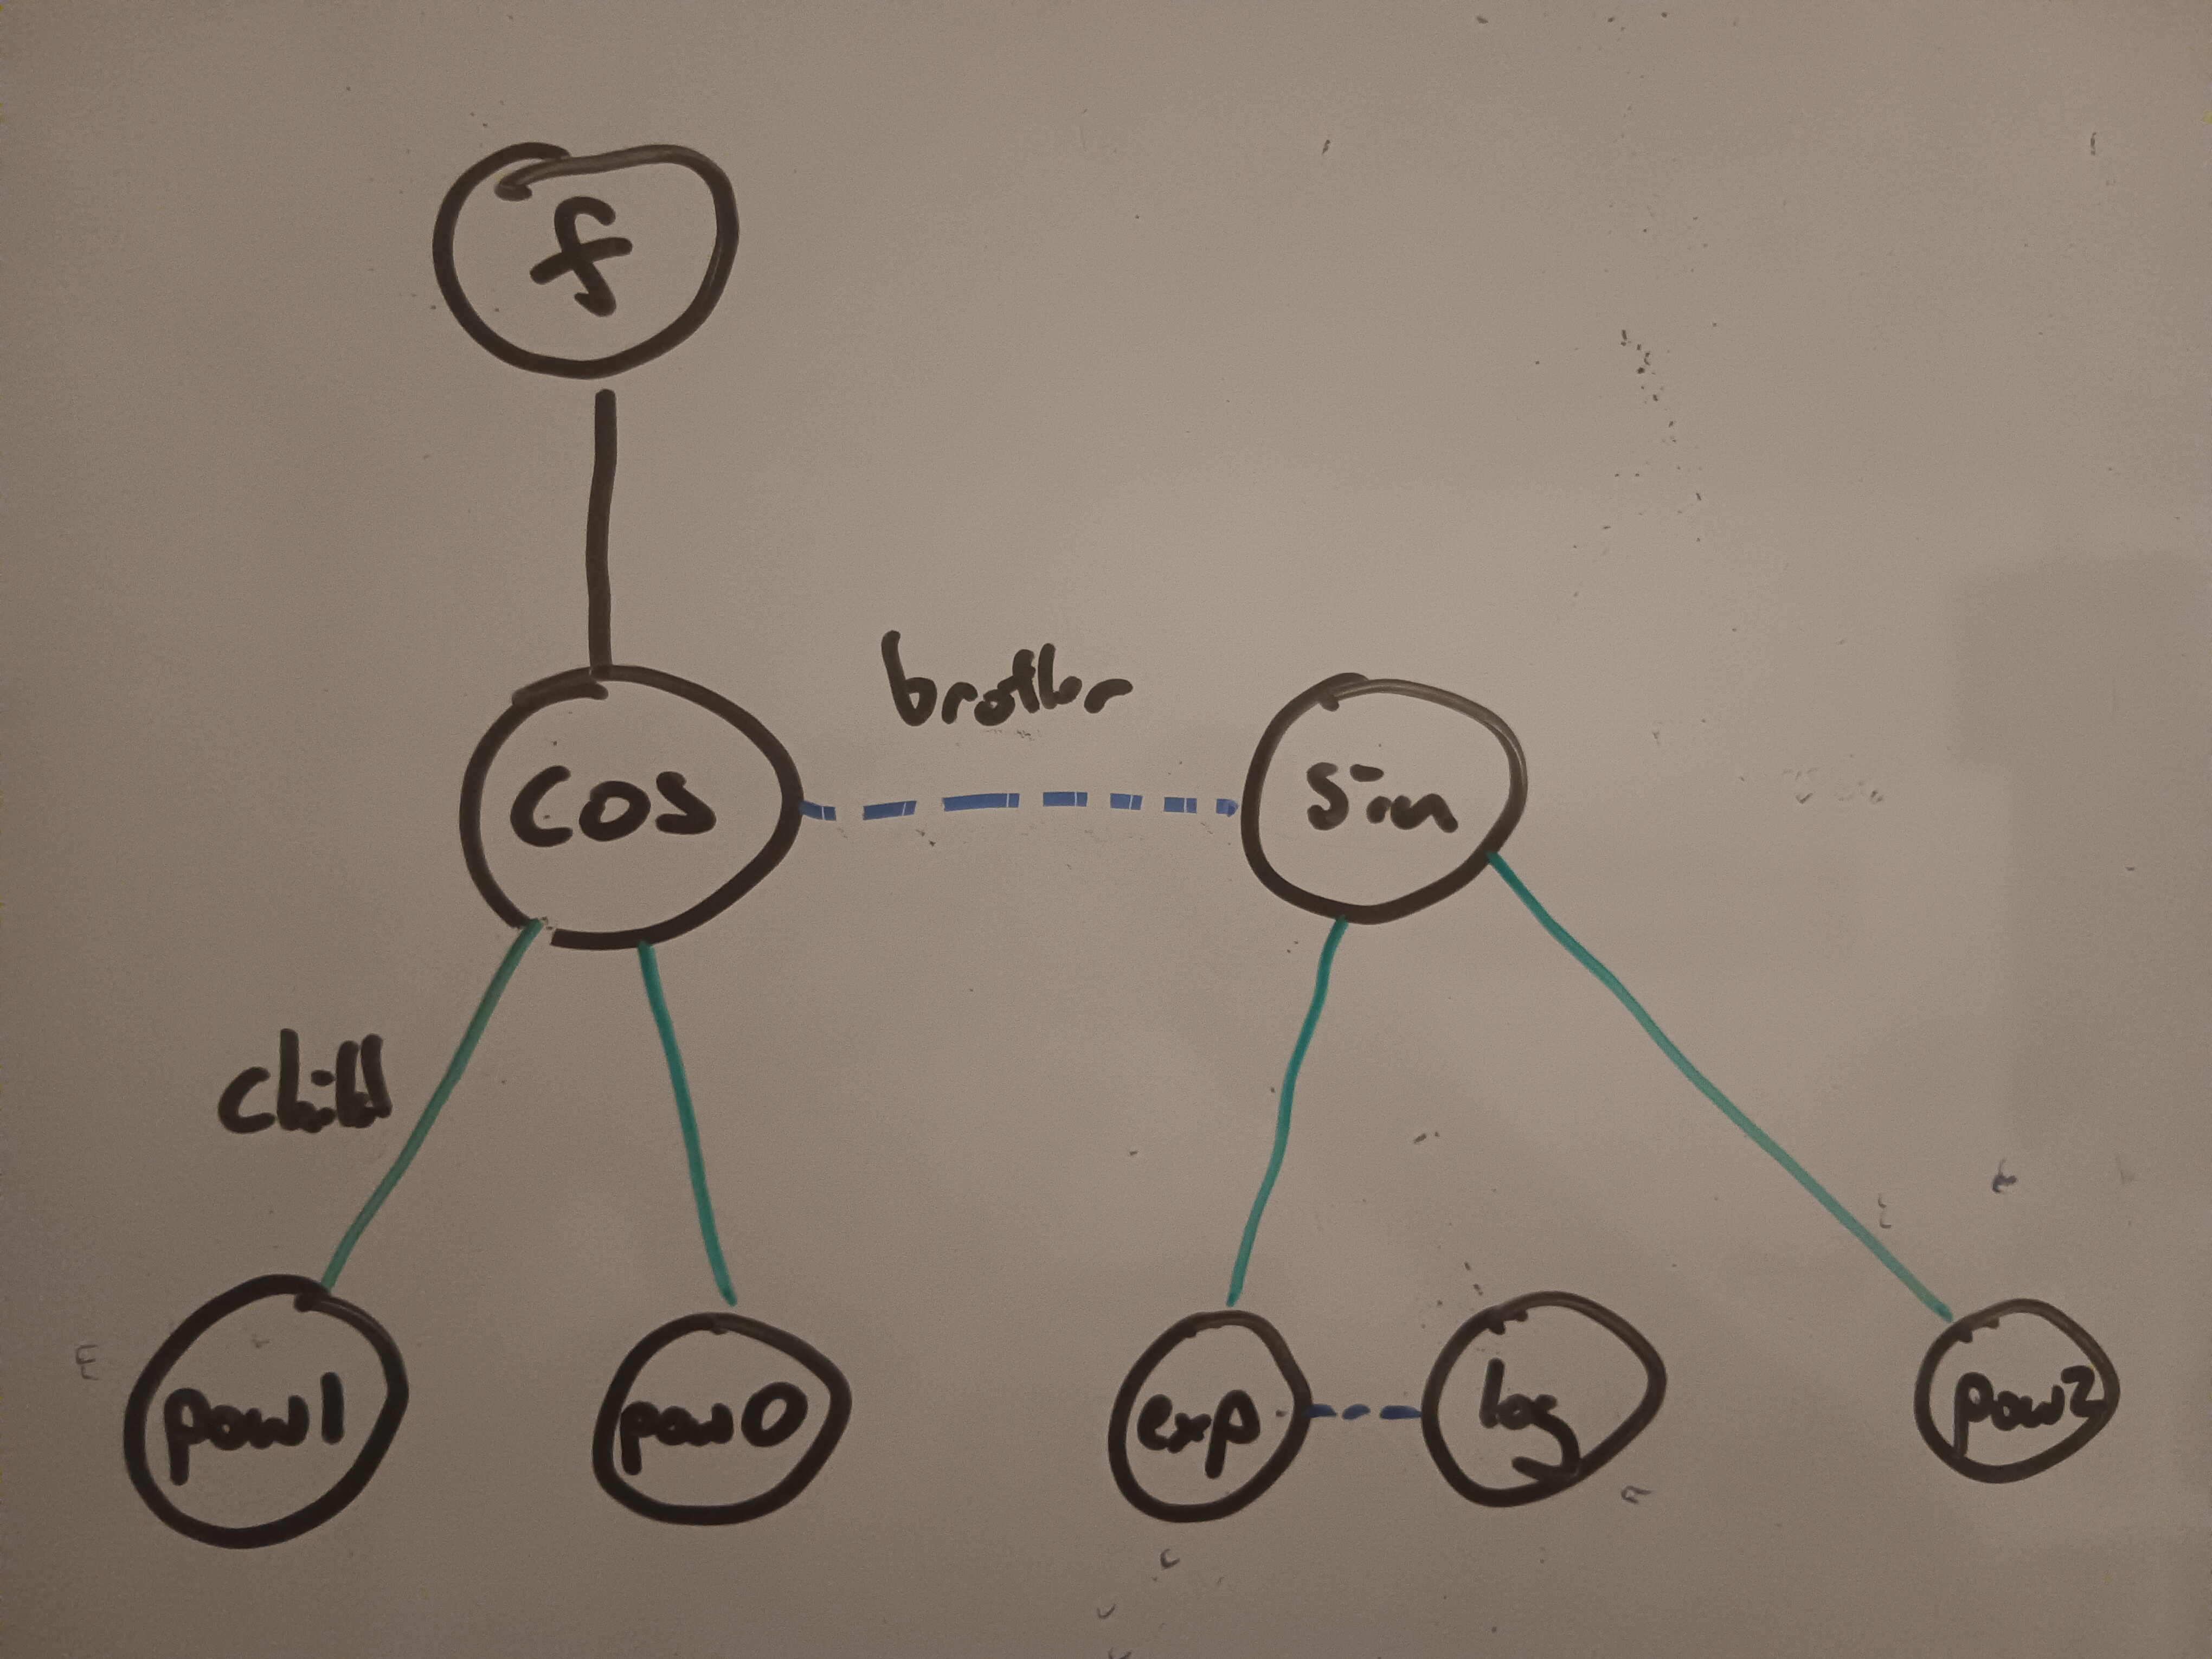 f
brother
cos
sin
child
pow1
pow0
exp
log
pow2